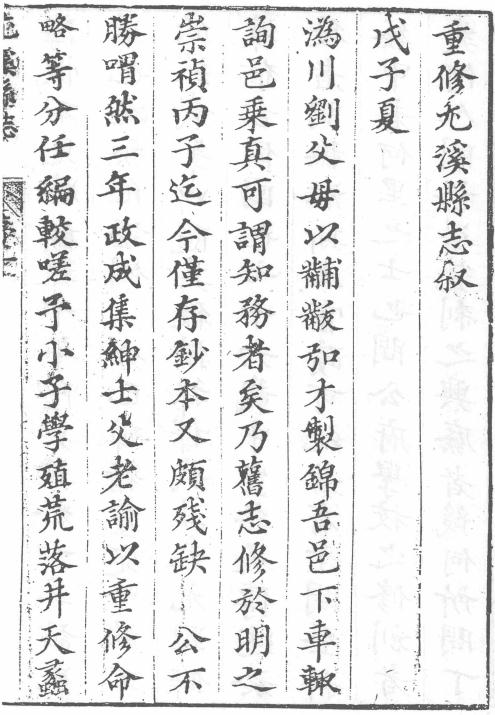 重修尤溪縣志敘
戊子夏
溈川劉父母以黼黻弘才製錦吾邑下車輙
詢邑乘真可謂知務者矣乃舊志修於明之
崇禎丙子迄今僅存鈔本又頗残缺　公不
勝喟然三年政成集紳士父老諭以重修命
略等分任編較嗟予小子學殖荒落井天蠡
尤溪縣志